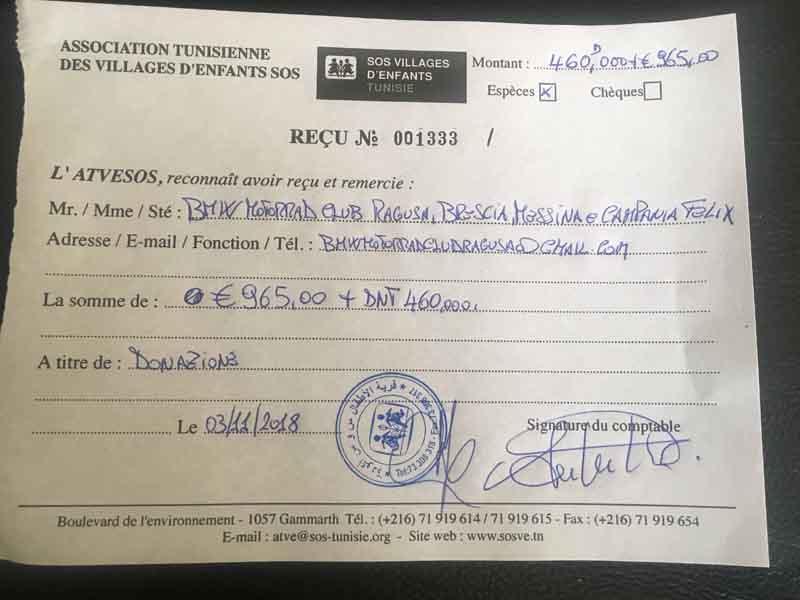 ASSOCIATION TUNISIENNE
DES VILLAGES D'ENFANTS SOS
SOS VILLAGES
D'ENFANTS
TUNISIE
Montant : 460,000 D + € 965,00
Espèces x Chèques
REÇU № 001333 /
L'ATVESOS, reconnaît avoir reçu et remercie :
Mr. / Mme / Sté : BMW MOTORRAD CLUB RAGUSA, BRESCIA, MESSINA e CAMPANIA FELIX
Adresse / E-mail / Fonction / Tél. : BMWMOTORRADCLUBRAGUSA@GMAIL.COM
La somme de : € 965,00 + DNT 460,000
A titre de : DONAZIONE
Le 03/11/2018
Signature du comptable
قرية الأطفال س و س
Boulevard de l'environnement - 1057 Gammarth Tél. : (+216) 71 919 614 / 71 919 615 - Fax : (+216) 71 919 654
E-mail : atve@sos-tunisie.org - Site web : www.sosve.tn